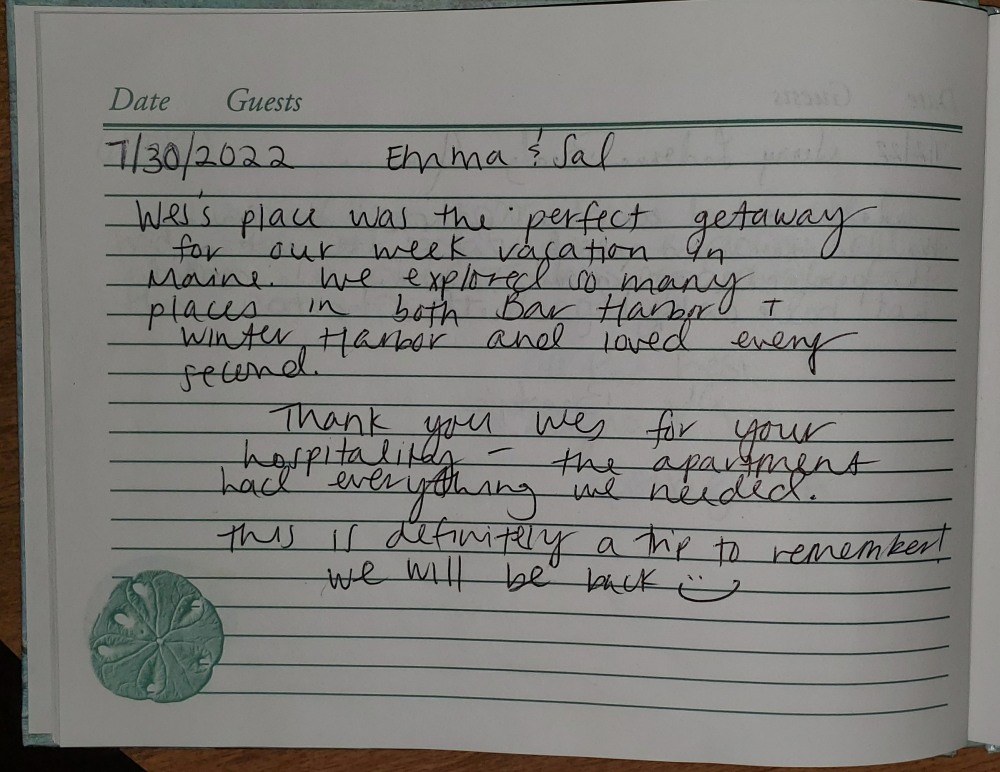 Date Guests
7/30/2022 Emma & Sal
Wes's place was the perfect getaway
for our week vacation in
Maine. We explored so many
places in both Bar Harbor +
Winter Harbor and loved every
second.
Thank you Wes for your
hospitality - the apartment
had everything we needed.
This is definitely a trip to remember!
We will be back :)